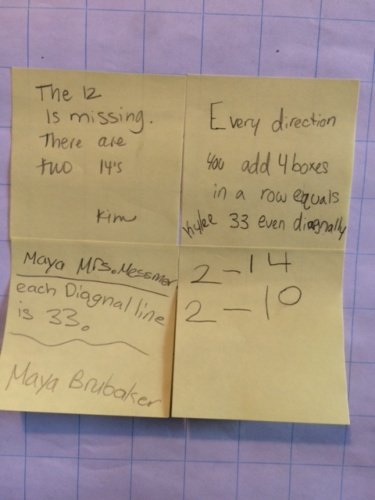 The 12
is missing.
There are
two 14's
Kim
Every direction
you add 4 boxes
in a row equals
Kylee 33 even diagnally
Maya Mrs. Messmer
each Diagnal line
is 33.
Maya Brubaker
2 - 14
2 - 10